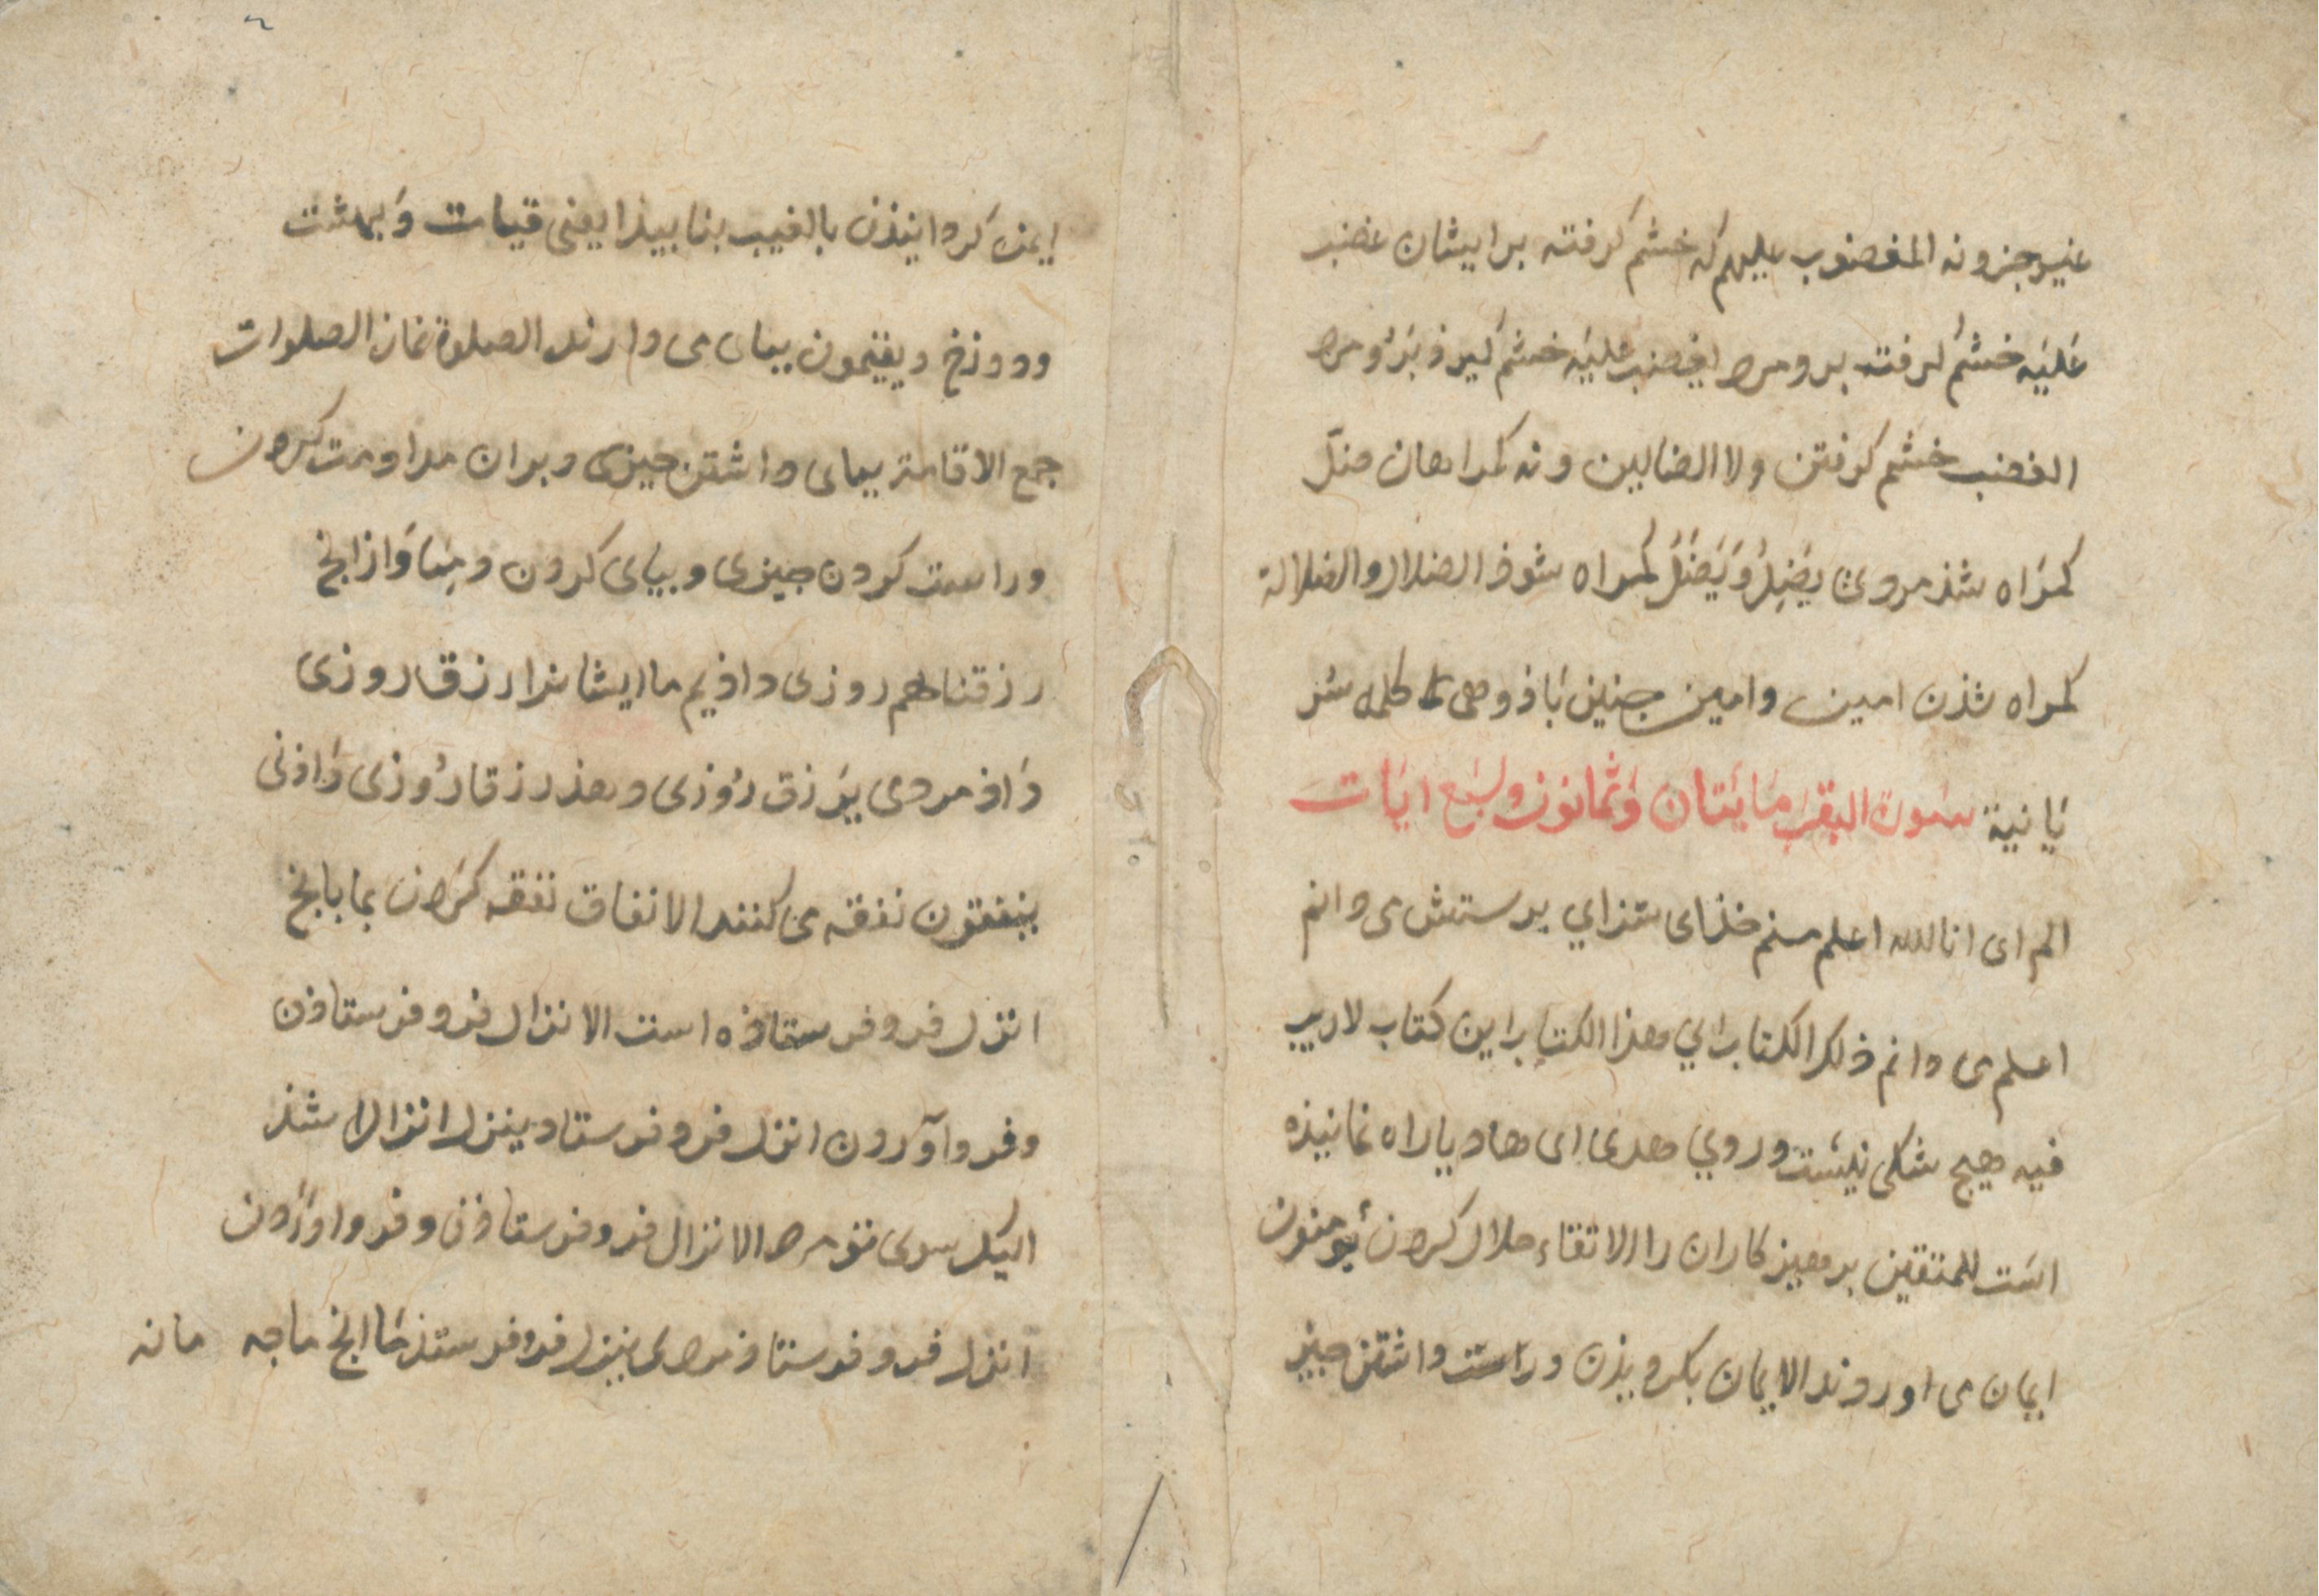 غیر جز و نه المغضوب علیهم که خشم کرفته بر ایشان غضب
عَلَیَه خشم کرفت بر و مرد یغضب علیَه خشم کیرذ بَرُو مرد
الغضب خشم کرفتن ولا الضالین و نه کمراهان ضلّ
کمرَاه شذ مروی یضِلُ وَیَضَلُ کمراه شوذ الضلال والضلالة
کمراه شذن امین وامین جنین بَاذ وهی کلمه
یَا نیة سَورة البقرَ مَایَتان وَثمانون وسَبَع ایَات
الم ای انا الله اعلم منم خذای سَزای برستش می دانم
اعلم می دانم ذلک الکتاب ای هذا الکتاب این کتاب لاریب
فیه هیچ شکی نیَست در وی هدی ای هادیا راه نماینذه
اسَت للمتقین برهیز کاران را الاتقاء حلال کردن یُومنون
ایمان می اورند الایمان بکرویذن و راست داشتن جیز
ایمن کردانیذن بالغیب بنا بیذا یعنی قیامت وَبهشت
ودوزخ ویقیمون ببای می دارند الصلوة نماز الصلوات
جمع الاقامة ببای داشتن جیزی وبران مداومت کردن
وراست کردن جیزی وببای کردن ومِمَا وَاز انج
رزقناهم روزی داذیم ما ایشانرا رزق روزی
دَاذ مردی یَرزق رُوزی دهذ رزقا رُوزی دَاذنی
ینفقون نفقه می کنند الانفاق نفقه کَردن بما بانج
انزل فرو فرستاذه است الانزال فرو فرستاذن
وفرو آوردن انزل فرو فرستاد ینزل انزالا شذ
الیک سوی تو مرد الانزال فرو فرستاذن وفرو اوَرَدن
انزل فرو فرستاذ مردی ینزل فرو فرستذ مَا انج ماجه مانه